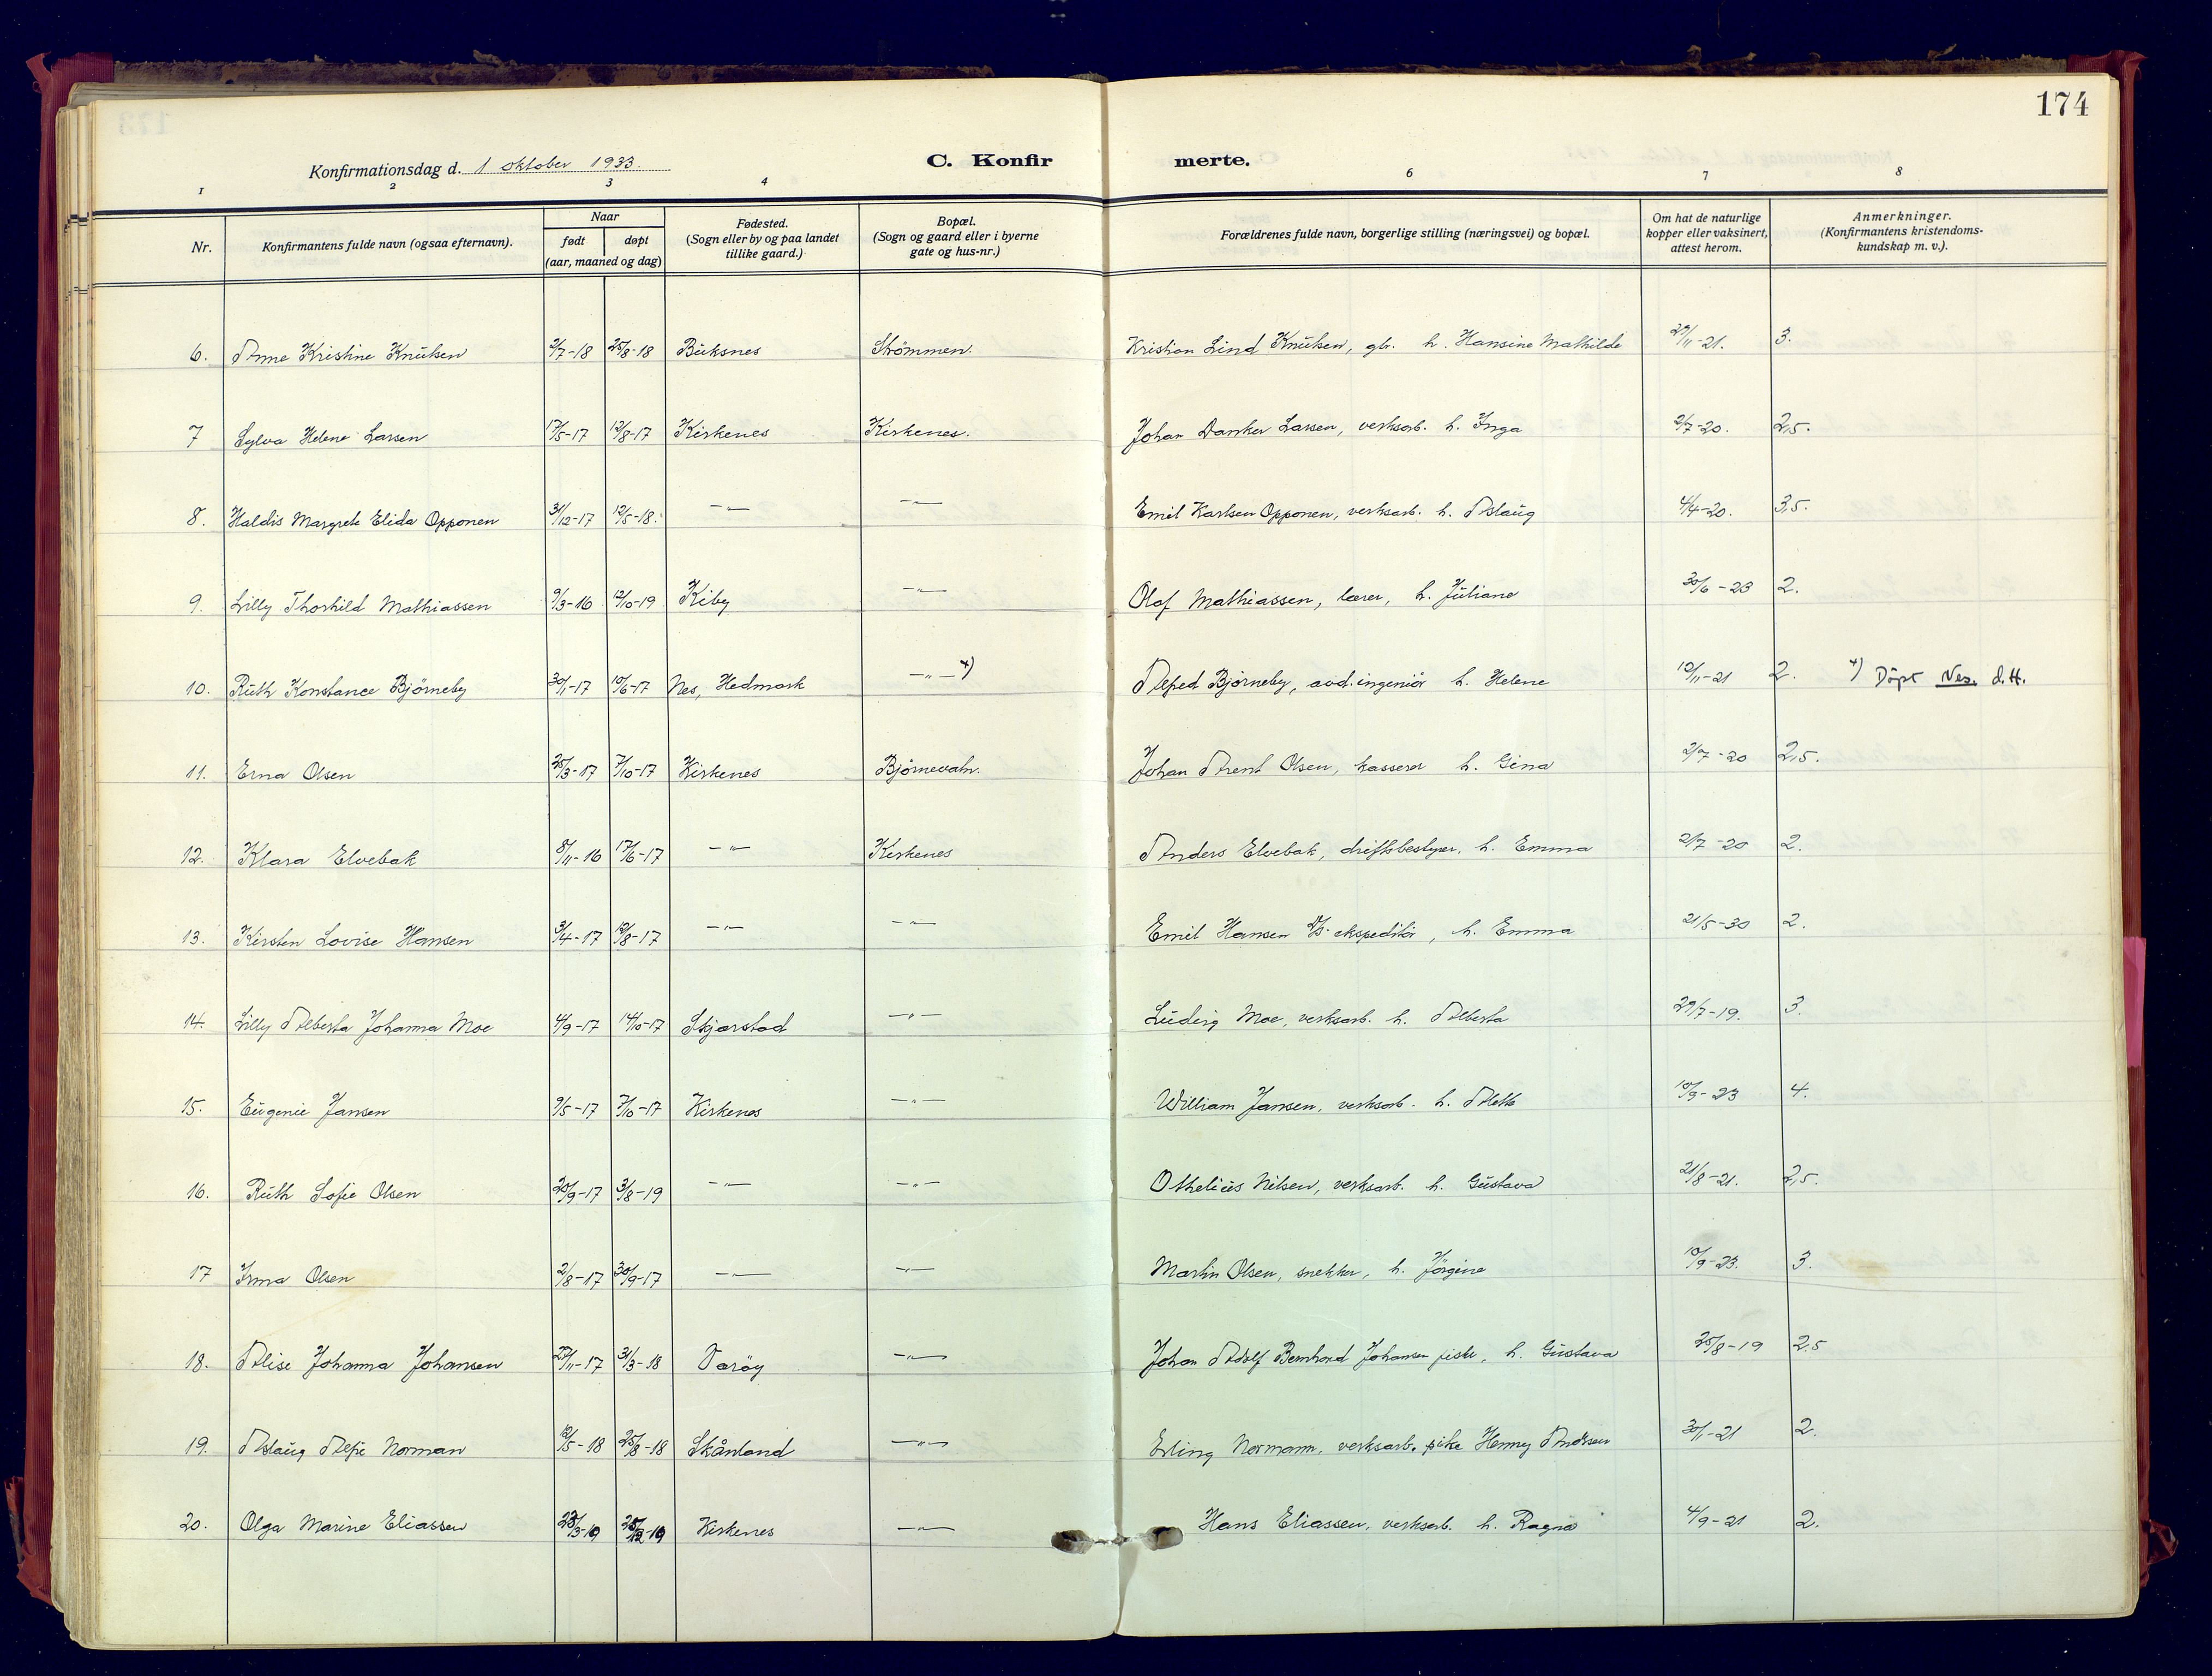 174
Konfirmationsdag d. 1 oktober 1933.
C. Konfir merte.
1 2 3 4 6 7 8
Nr. Konfirmantens fulde navn (ogsaa efternavn). Naar født døpt (aar, maaned og dag) Fødested. (Sogn eller by og paa landet tillike gaard.) Bopæl. (Sogn og gaard eller i byerne gate og hus-nr.) Forældrenes fulde navn, borgerlige stilling (næringsvei) og bopæl. Om hat de naturlige kopper eller vaksinert, attest herom. Anmerkninger. (Konfirmantens kristendoms-kundskap m. v.).
6. Anne Kristine Knutsen 2/7-18 25/8-18 Buksnes Strömmen. Kristian Lind Knutsen, gbr. h. Hansine Mathilde 29/11-21. 3.
7 Sylva Helene Larsen 17/5-17 12/8-17 Kirkenes Kirkenes. Johan Danker Larsen, verksarb. h. Inga 2/7-20. 2,5.
8. Haldis Margrete Elida Opponen 31/12-17 12/5-18. —"— —"— Emil Karlsen Opponen, verksarb. h. Aslaug 4/4-20. 3,5.
9. Lilly Thorhild Mathiassen 9/3-16 12/10-19 Kiby —"— Olaf Mathiassen, lærer, h. Juliane 30/6-23 2.
10. Ruth Konstance Björneby 30/1-17 10/6-17 Nes, Hedmark —"— x) Alfred Björneby, avd. ingeniör h. Helene 10/11-21 2. x) Döpt Nes. d.H.
11. Erna Olsen 25/3-17 7/10-17 Kirkenes Björnevatn. Johan Arent Olsen, kasserer h. Gina 2/7-20 2,5.
12. Klara Elvebak 8/11-16 17/6-17 —"— Kirkenes Anders Elvebak, driftsbestyrer, h. Emma 2/7-20 2.
13. Kirsten Lovise Hansen 3/4-17 12/8-17 —"— —"— Emil Hansen D/S-ekspeditör, h. Emma 21/5-30 2.
14. Lilly Alberta Johanna Moe 4/9-17 14/10-17 Skjerstad —"— Ludvig Moe, verksarb. h. Alberta 29/7-19. 3.
15. Eugenie Jansen 9/5-17 7/10-17 Kirkenes —"— William Jansen, verksarb. h. Alette 10/9-23 4.
16. Ruth Sofie Olsen 20/9-17 3/8-19 —"— —"— Othelius Nilsen, verksarb. h. Gustava 21/8-21. 2,5.
17 Irma Olsen 2/8-17 30/9-17 —"— —"— Martin Olsen, snekker, h. Jörgine 10/9-23. 3.
18. Alise Johanna Johansen 27/11-17 31/3-18 Værøy —"— Johan Adolf Bernhard Johansen fisker, h. Gustava 25/8-19 2,5
19. Aslaug Alfie Norman 12/5-18 25/8-18 Skånland —"— Erling Normann, verksarb. pike Henny Andssen 30/1-21 2.
20. Olga Marine Eliassen 23/3-19 28/12-19 Kirkenes —"— Hans Eliassen, verksarb. h. Ragna 4/9-21 2.